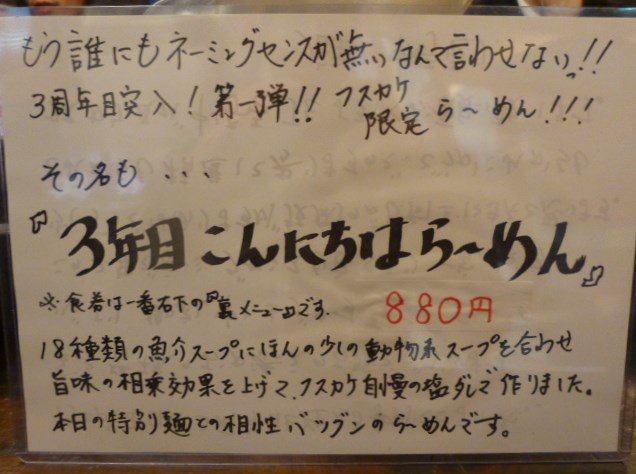 もう誰にもネーミングセンスが無いなんて言わせないっ!!
3周年目突入! 第一弾!! フスカケ限定 ら〜めん!!!
その名も・・・
『3年目こんにちはら〜めん』
※食券は一番右下の『裏メニュー』です.
880円
18種類の魚介スープにほんの少しの動物系スープを合わせ
旨味の相乗効果を上げて、フスカケ自慢の塩ダレで作りました。
本日の特別麺との相性バツグンのら〜めんです。